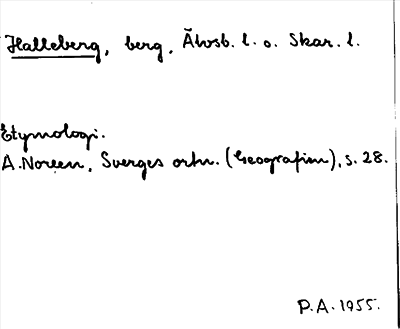 Halleberg, berg, Älvsb. l. o. Skar. l.
Etymologi.
A. Noreen, Sverges ortn. (Geografien), s. 28.
P.A. 1955.